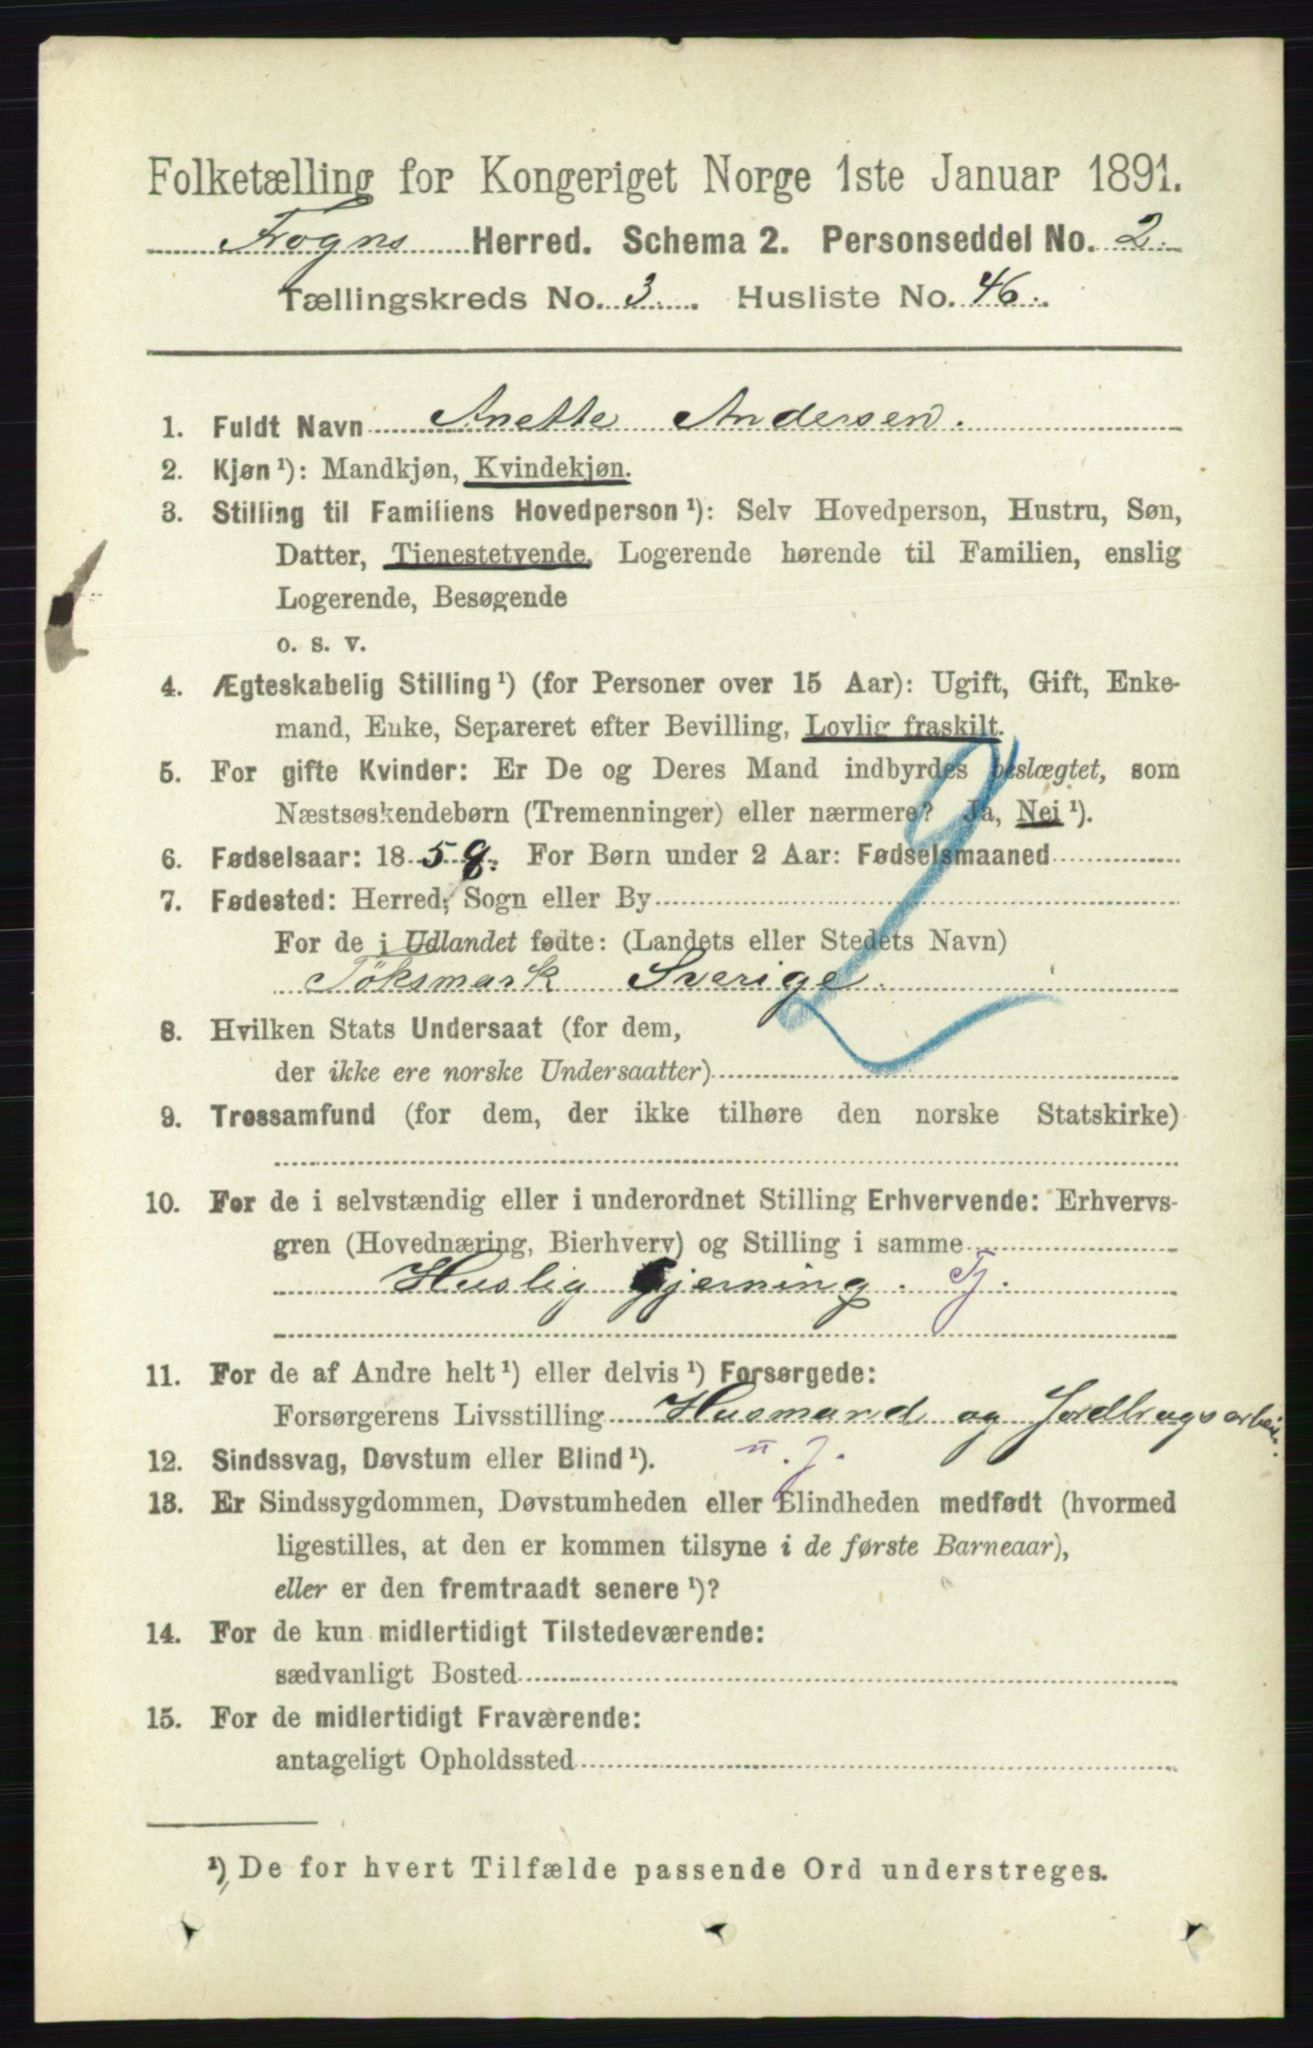 Folketælling for Kongeriget Norge 1ste Januar 1891.
Frogns Herred. Schema 2. Personseddel No. 2.
Tællingskreds No. 3. Husliste No. 46.
1. Fuldt Navn Anette Andersen.
2. Kjøn¹): Mandkjøn, Kvindekjøn.
3. Stilling til Familiens Hovedperson¹): Selv Hovedperson, Hustru, Søn,
Datter, Tjenestetyende, Logerende hørende til Familien, enslig
Logerende, Besøgende
o. s. v.
4. Ægteskabelig Stilling¹) (for Personer over 15 Aar): Ugift, Gift, Enke-
mand, Enke, Separeret efter Bevilling, Lovlig fraskilt.
5. For gifte Kvinder: Er De og Deres Mand indbyrdes beslægtet, som
Næstsøskendebørn (Tremenninger) eller nærmere? Ja, Nei¹).
6. Fødselsaar: 1859. For Børn under 2 Aar: Fødselsmaaned
7. Fødested: Herred, Sogn eller By
For de i Udlandet fødte: (Landets eller Stedets Navn)
Töksmark Sverige.
2
8. Hvilken Stats Undersaat (for dem,
der ikke ere norske Undersaatter)
9. Trossamfund (for dem, der ikke tilhøre den norske Statskirke)
10. For de i selvstændig eller i underordnet Stilling Erhvervende: Erhvervs-
gren (Hovednæring, Bierhverv) og Stilling i samme
Huslig Gjerning. Tj.
11. For de af Andre helt¹) eller delvis¹) Forsørgede:
Forsørgerens Livsstilling Husmand og Jordbrugsarbeider.
12. Sindssvag, Døvstum eller Blind¹).
13. Er Sindssygdommen, Døvstumheden eller Blindheden medfødt (hvormed
ligestilles, at den er kommen tilsyne i de første Barneaar),
eller er den fremtraadt senere¹)?
14. For de kun midlertidigt Tilstedeværende:
sædvanligt Bosted
15. For de midlertidigt Fraværende:
antageligt Opholdssted
¹) De for hvert Tilfælde passende Ord understreges.